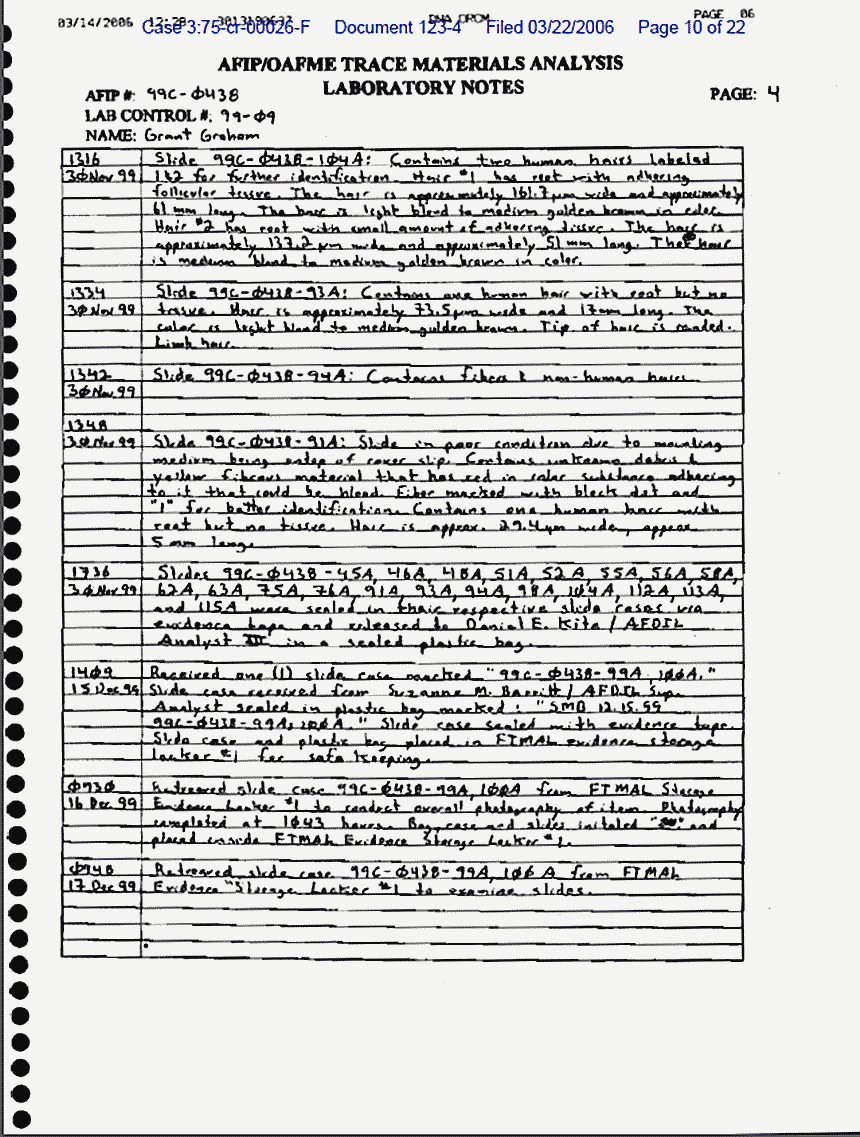 03/14/2006 12:28 3013190633 DNA OPCM PAGE 06
Case 3:75-cr-00026-F Document 123-4 Filed 03/22/2006 Page 10 of 22
AFIP/OAFME TRACE MATERIALS ANALYSIS
LABORATORY NOTES
AFIP #: 99C-Ø438
PAGE: 4
LAB CONTROL #: 99-Ø9
NAME: Grant Graham
1316 Slide 99C-Ø438-104A: Contains two human hairs labeled
3Ø Nov 99 1&2 for further identification. Hair #1 has root with adhering
follicular tissue. The hair is approximately 161.7µm wide and approximately
61 mm long. The hair is light blond to medium golden brown in color.
Hair #2 has root with small amount of adhering tissue. The hair is
approximately 137.2 µm wide and approximately 51 mm long. The hair
is medium blond to medium golden brown in color.
1334 Slide 99C-Ø438-93A: Contains one human hair with root but no
3Ø Nov 99 tissue. Hair is approximately 73.5µm wide and 17mm long. The
color is light blond to medium golden brown. Tip of hair is rounded.
Limb hair.
1342 Slide 99C-Ø438-94A: Contains fibers & non-human hairs
3Ø Nov 99
1348
3Ø Nov 99 Slide 99C-Ø438-91A: Slide in poor condition due to mounting
medium being ontop of cover slip. Contains unknown debris &
yellow fibrous material that has red in color substance adhering
to it that could be blood. Fiber marked with black dot and
"1" for better identification. Contains one human hair with
root but no tissue. Hair is approx. 29.4µm wide, approx
5 mm long.
1736 Slides 99C-Ø438-45A, 46A, 48A, 51A, 52A, 55A, 56A, 58A,
3Ø Nov 99 62A, 63A, 75A, 76A, 91A, 93A, 94A, 98A, 1Ø4A, 112A, 113A,
and 115A were sealed in their respective slide cases via
evidence tape and released to Daniel E. Kita / AFDIL
Analyst III in a sealed plastic bag.
14Ø9 Received one (1) slide case marked "99C-Ø438-99A, 1Ø6A."
15 Dec 99 Slide case received from Suzanne M. Barritt / AFDIL Sup.
Analyst sealed in plastic bag marked: "SMB 12.15.99
99C-Ø438-99A, 1Ø6A." Slide case sealed with evidence tape.
Slide case and plastic bag placed in FTMAL evidence storage
locker #1 for safe keeping.
Ø93Ø Retreaved slide case 99C-Ø438-99A, 1Ø6A from FTMAL Storage
16 Dec 99 Evidence Locker #1 to conduct overall photography of item. Photography
completed at 1Ø43 hours. Bag, case and slides initaled and
placed inside FTMAL Evidence Storage Locker #1.
Ø948 Retreaved slide case 99C-Ø438-99A, 1Ø6A from FTMAL
17 Dec 99 Evidence "Storage Locker #1 to examine slides.